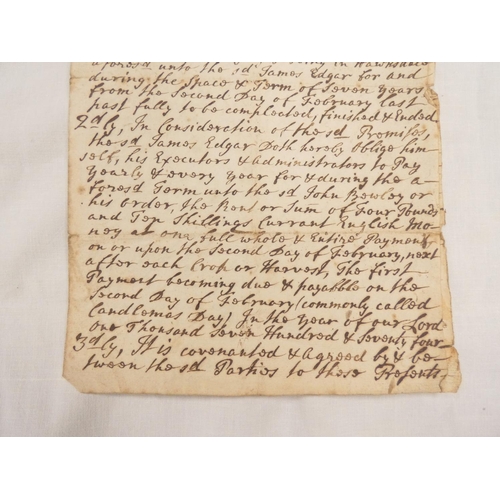 in Hawksdale
aforesd. unto the sd. James Edgar for and
during the Space & Term of Seven Years
from the Second Day of February last
past fully to be compleated, finished & Ended
2dly, In Consideration of the sd. Premises,
the sd. James Edgar Doth hereby Oblige him-
self, his Executors & Administrators to Pay
Yearly & every Year for & during the a-
foresd Term unto the sd. John Bewley or
his Order, the Rent or Sum of Four Pounds
and Ten Shillings Currant English Mo-
ney at one full whole & Entire Payment
on or upon the Second Day of February, next
after each Crop or Harvest, The first
Payment becoming due & payabble on the
Second Day of February (commonly called
Candlemas Day) In the Year of our Lord
one Thousand Seven Hundred & Seventy four
3dly, It is covenanted & Agreed by & be-
tween the sd Parties to these Presents